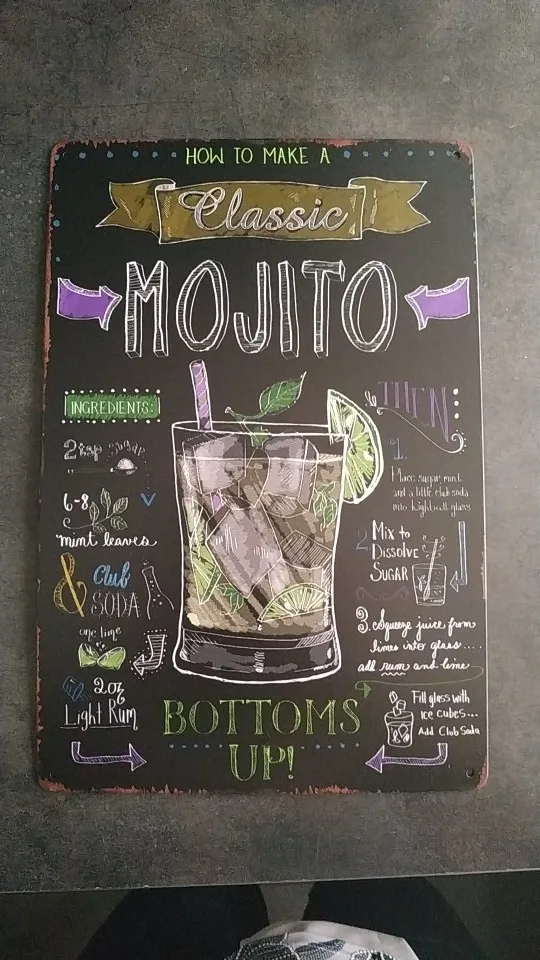 HOW TO MAKE A
Classic
MOJITO
INGREDIENTS:
2 tsp sugar
6-8
mint leaves
& Club
SODA
one lime
2oz
Light Rum
& THEN:
1.
Place sugar, mint
and a little club soda
into highball glass
2 Mix to
Dissolve
SUGAR
3. Squeeze juice from
limes into glass....
add rum and lime
Fill glass with
ice cubes...
Add Club Soda
BOTTOMS
UP!